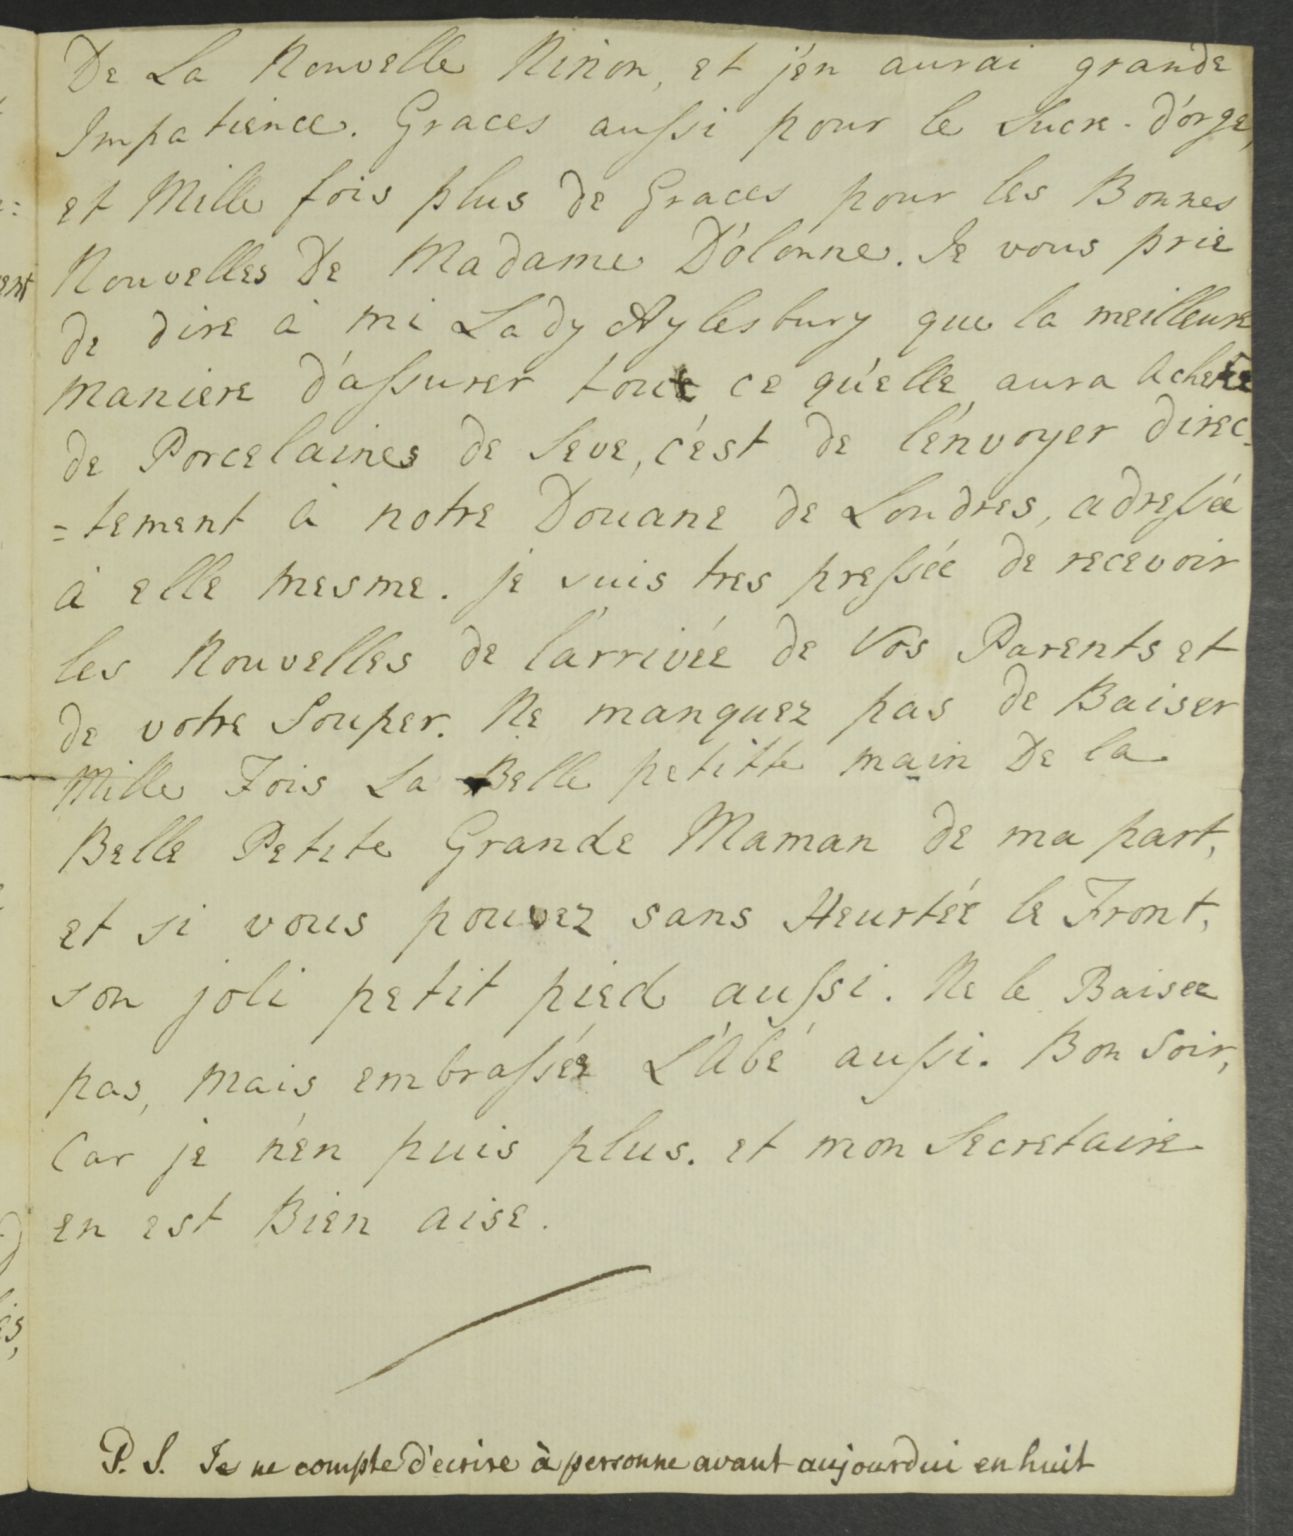 De La Nouvelle Ninon, et j'en aurai grande
Impatience. Graces aussi pour le Sucre-d'orge,
et Mille fois plus de Graces pour les Bonnes
Nouvelles De Madame D'olonne. Je vous prie
de dire à mi Lady Aylesbury que la meilleure
maniere d'assurer tout ce qu'elle aura Acheté
de Porcelaines de Seve, c'est de l'envoyer direc-
=tement à notre Doüane de Londres, adressée
à elle mesme. je suis tres pressée de recevoir
les Nouvelles de l'arrivée de Vos Parents et
de votre Souper. Ne manquez pas de Baiser
Mille Fois La Belle petitte main De la
Belle Petite Grande Maman de ma part,
et si vous pouvez sans Heurtée le Front,
son joli petit pied aussi. Ne le Baisee
pas, mais embrassée L'Abé aussi. Bon Soir,
Car je n'en puis plus. et mon Secretaire
en est Bien aise.
P. S. Je ne compte d'ecrire à personne avant aujourdui en huit